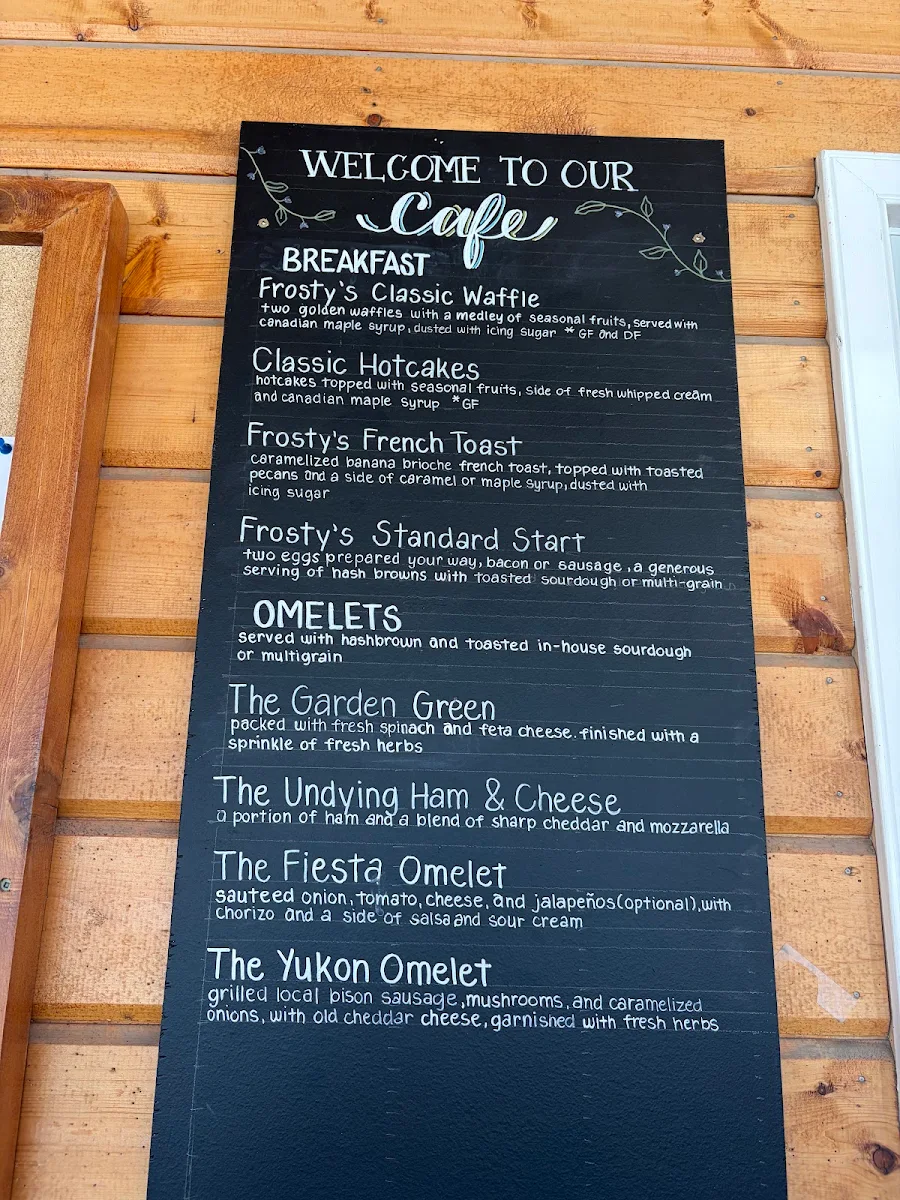 WELCOME TO OUR
Cafe
BREAKFAST
Frosty's Classic Waffle
two golden waffles with a medley of seasonal fruits, served with
canadian maple syrup, dusted with icing sugar *GF and DF
Classic Hotcakes
hotcakes topped with seasonal fruits, side of fresh whipped cream
and canadian maple syrup *GF
Frosty's French Toast
caramelized banana brioche french toast, topped with toasted
pecans and a side of caramel or maple syrup, dusted with
icing sugar
Frosty's Standard Start
two eggs prepared your way, bacon or sausage, a generous
serving of hash browns with toasted sourdough or multi-grain
OMELETS
served with hashbrown and toasted in-house sourdough
or multigrain
The Garden Green
packed with fresh spinach and feta cheese. finished with a
sprinkle of fresh herbs
The Undying Ham & Cheese
a portion of ham and a blend of sharp cheddar and mozzarella
The Fiesta Omelet
sauteed onion, tomato, cheese, and jalapeños(optional), with
chorizo and a side of salsa and sour cream
The Yukon Omelet
grilled local bison sausage, mushrooms, and caramelized
onions, with old cheddar cheese, garnished with fresh herbs